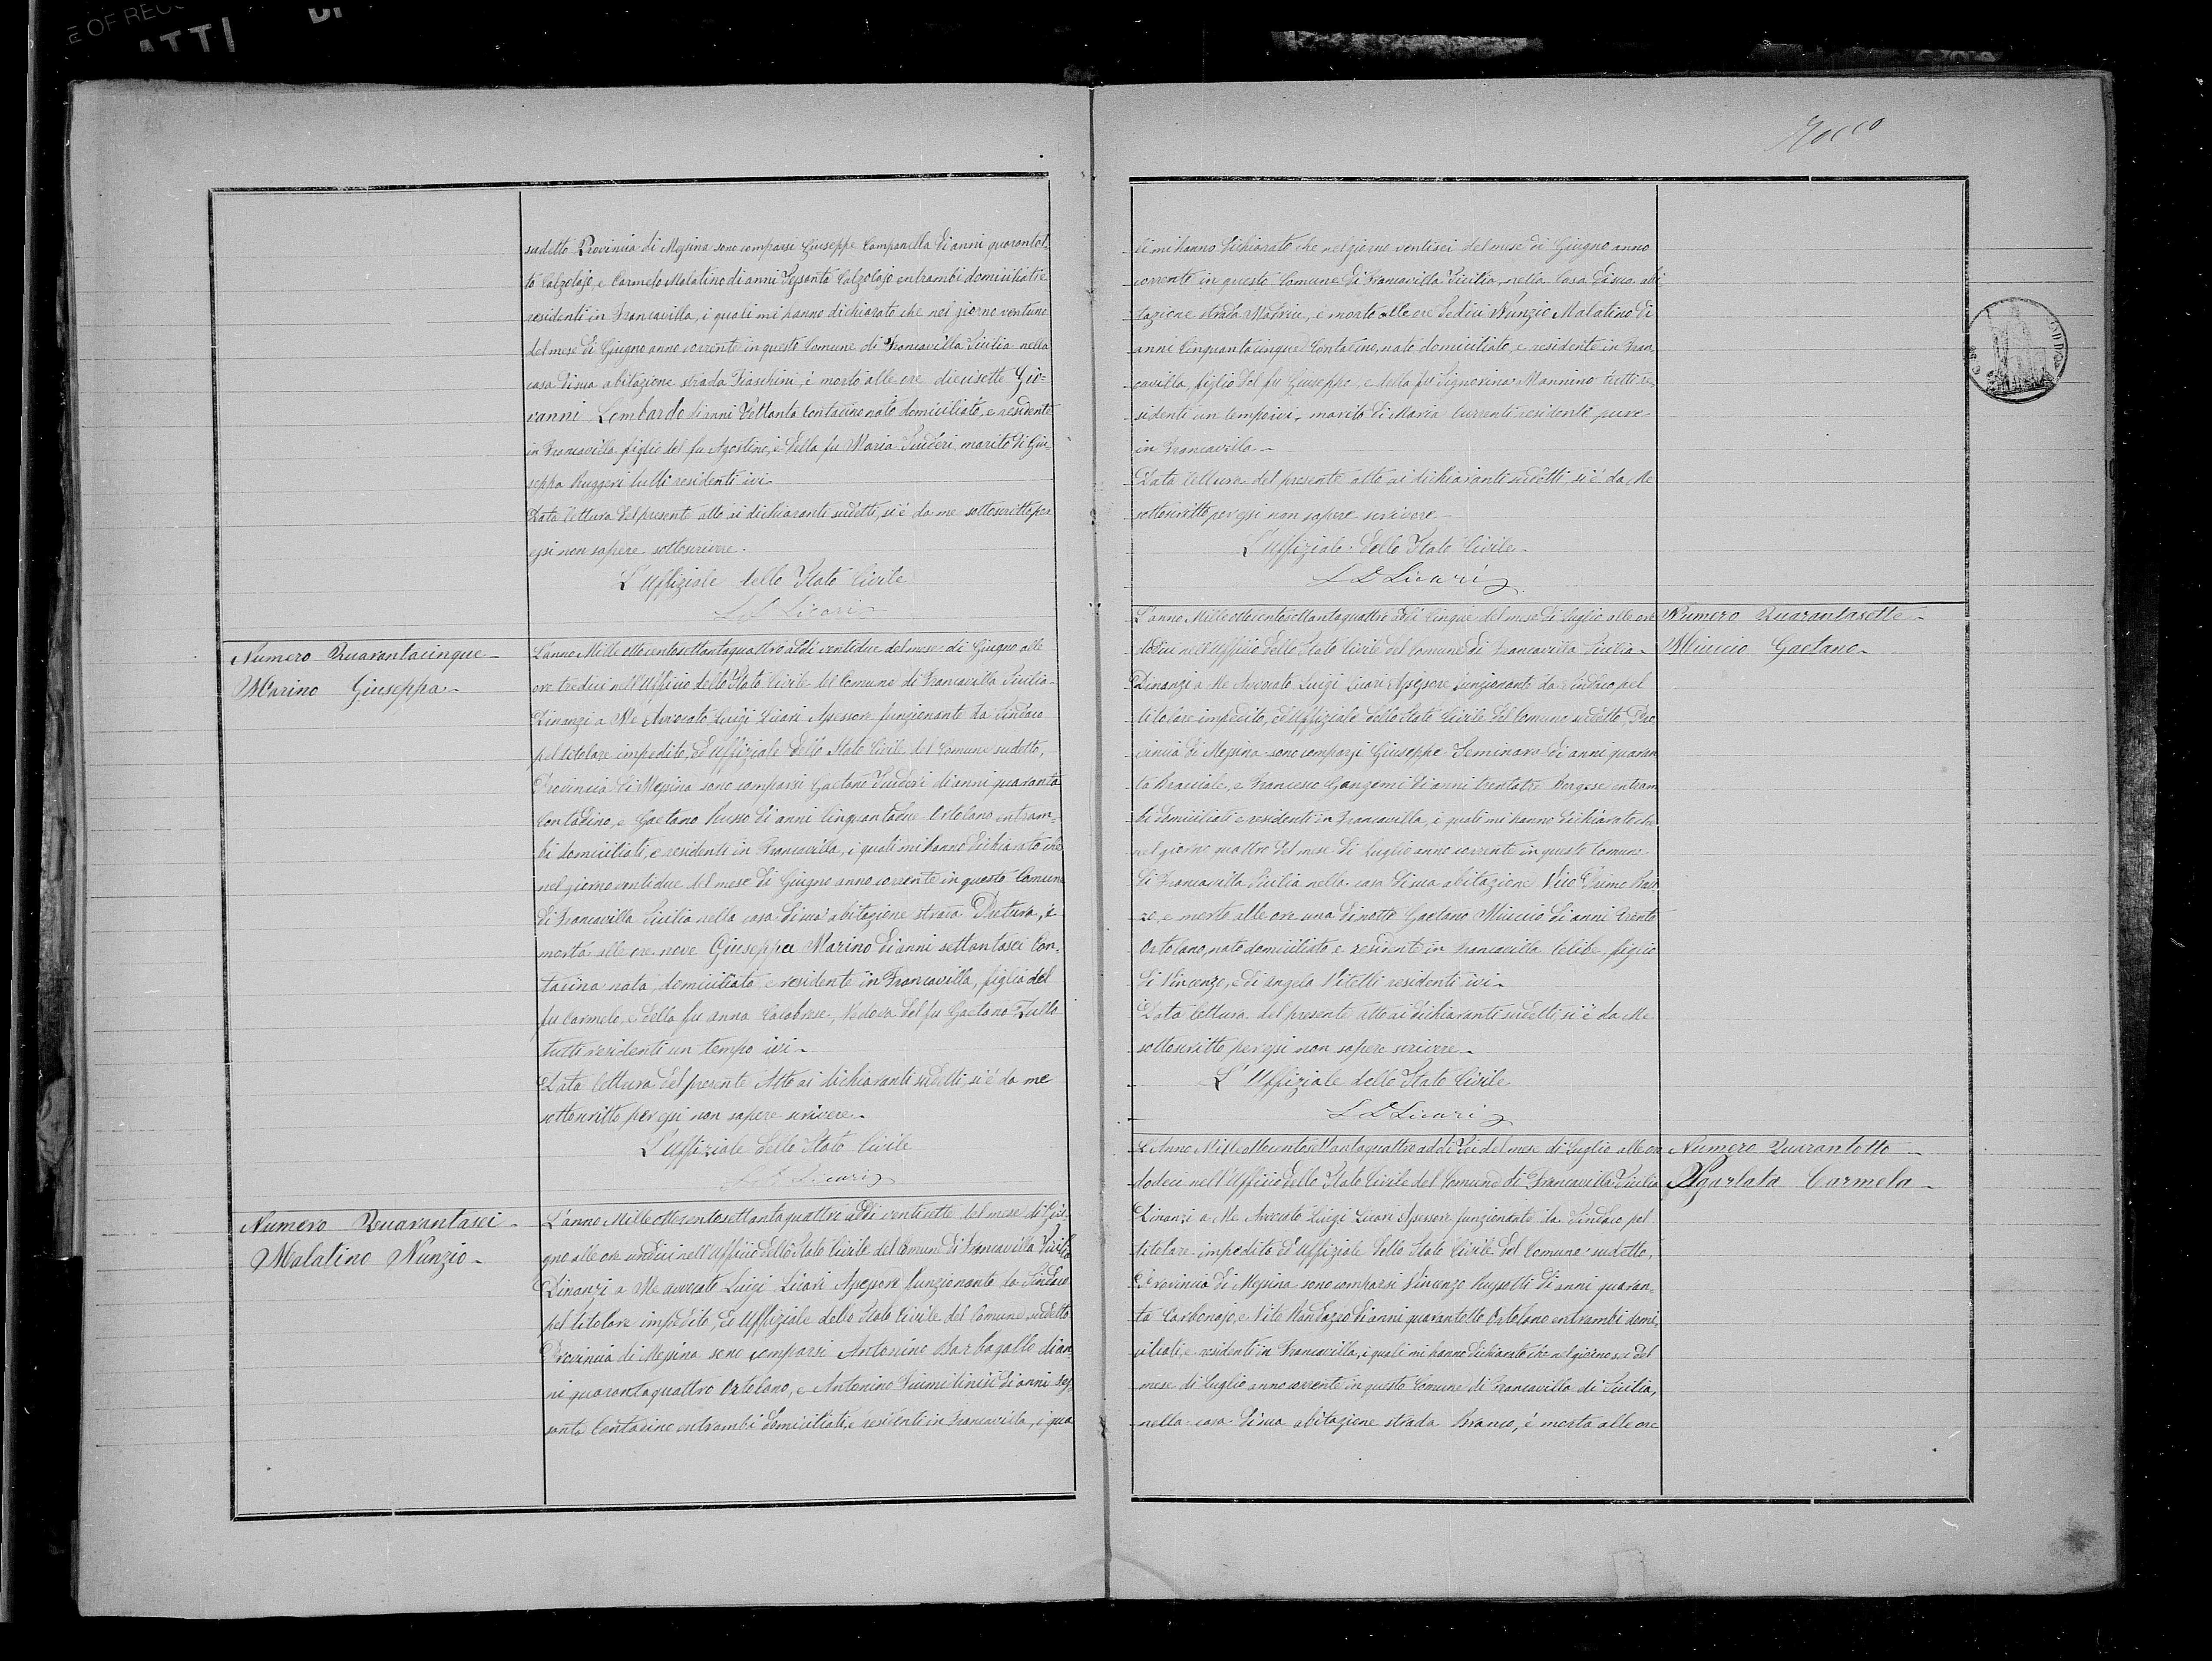 E OF REC
ATTI
DI
sudetto Provincia di Messina sono comparsi Giuseppe Campanella di anni quarantot-
to Calzolajo, e Carmelo Malatino di anni Sessanta Calzolajo entrambi domiciliati e
residenti in Francavilla, i quali mi hanno dichiarato che nel giorno ventuno
del mese di Giugno anno corrente in questo Comune di Francavilla Sicilia nella
casa di sua abitazione strada Fiaschini, è morto alle ore diecisette Gio-
vanni Lombardo di anni Settanta Contadino nato domiciliato, e residente
in Francavilla figlio del fu Agostino, e della fu Maria Scuderi marito di Giu-
seppa Ruggeri tutti residenti ivi-
Data lettura del presente atto ai dichiaranti sudetti, si è da me sottoscritto per
essi non sapere sottoscrivere.
L'Uffiziale dello Stato Civile
L D Licari
Numero Quarantacinque-
Marino Giuseppa-
L'anno Mille ottocentosettantaquattro addì ventidue del mese di Giugno alle
ore tredici nell'Ufficio dello Stato Civile del Comune di Francavilla Sicilia-
Dinanzi a Me Avvocato Luigi Licari Assessore funzionante da Sindaco
pel titolare impedito, ed Uffiziale dello Stato Civile del Comune sudetto,
Provincia di Messina sono comparsi Gaetano Scuderi di anni quaranta
Contadino, e Gaetano Russo di anni Cinquantadue Ortolano entram-
bi domiciliati, e residenti in Francavilla, i quali mi hanno dichiarato che
nel giorno ventidue del mese di Giugno anno corrente in questo Comune
di Francavilla Sicilia nella casa di sua abitazione strada Putura, è
morta alle ore nove Giuseppa Marino di anni settantasei Con-
tadina nata, domiciliata e residente in Francavilla, figlia del
fu Carmelo, e della fu anna Calabrese, Vedova del fu Gaetano Zullo
tutti residenti un tempo ivi-
Data lettura del presente Atto ai dichiaranti sudetti, si è da me
sottoscritto per essi non sapere scrivere-
L'Uffiziale dello Stato Civile
L D Licari
Numero Quarantasei-
Malatino Nunzio-
L'anno Mille ottocentosettantaquattro addì ventisette del mese di Giu-
gno alle ore undici nell'Ufficio dello Stato Civile del Comune di Francavilla Sicilia
Dinanzi a Me avvocato Luigi Licari Assessore funzionante da Sindaco
pel titolare impedito, ed Uffiziale dello Stato Civile del Comune sudetto
Provincia di Messina sono comparsi Antonino Barbagallo di an-
ni quarantaquattro Ortolano, e Antonino Fiumilinisi di anni ses-
santa Contadino entrambi domiciliati, e residenti in Francavilla, i qua
li mi hanno dichiarato che nel giorno ventisei del mese di Giugno anno
corrente in questo Comune di Francavilla Sicilia, nella Casa di sua abi
tazione strada Matrice, è morto alle ore Sedici Nunzio Malatino di
anni Cinquantacinque Contadino, nato domiciliato, e residente in Fran-
cavilla, figlio del fu Giuseppe, e della fu Signorina Mannino tutti re-
sidenti un tempo ivi, marito di Maria Currenti residente pure
in Francavilla-
Data lettura del presente atto ai dichiaranti sudetti si è da Me
sottoscritto per essi non sapere scrivere-
L'Uffiziale dello Stato Civile-
L D Licari
L'anno Mille ottocentosettantaquattro addì Cinque del mese di Luglio alle ore
dodici nell'Ufficio dello Stato Civile del Comune di Francavilla Sicilia-
Dinanzi a Me Avvocato Luigi Licari Assessore funzionante da Sindaco pel
titolare impedito, ed Uffiziale dello Stato Civile del Comune sudetto, Pro
vincia di Messina sono comparsi Giuseppe Seminara di anni quaran
ta Bracciale, e Francesco Gangemi di anni trentatre Borgese entram
bi domiciliati e residenti in Francavilla, i quali mi hanno dichiarato che
nel giorno quattro del mese di Luglio anno corrente in questo Comune
di Francavilla Sicilia nella casa di sua abitazione Vico Primo
è morto alle ore una di notte Gaetano Miuccio di anni trenta
Ortolano, nato domiciliato e residente in Francavilla Celibe, figlio
di Vincenzo, e di Angela Vitelli residenti ivi-
Data lettura del presente atto ai dichiaranti sudetti, si è da Me
sottoscritto per essi non sapere scrivere-
L'Uffiziale dello Stato Civile
L D Licari
Numero Quarantasette-
Miuccio Gaetano-
L'Anno Mille ottocentosettantaquattro addì Sei del mese di Luglio alle ore
dodeci nell'Ufficio dello Stato Civile del Comune di Francavilla Sicilia
Dinanzi a Me Avvocato Luigi Licari Assessore funzionante da Sindaco pel
titolare impedito ed Uffiziale dello Stato Civile del Comune sudetto,
Provincia di Messina sono comparsi Vincenzo Russotti di anni quaran-
ta Carbonajo, e Vito Randazzo di anni quarantotto Ortolano entrambi domi-
ciliati, e residenti in Francavilla, i quali mi hanno dichiarato che nel giorno sei del
mese di Luglio anno corrente in questo Comune di Francavilla di Sicilia,
nella casa di sua abitazione strada Branco, è morta alle ore
Numero Quarantotto-
Sgarlata Carmela-